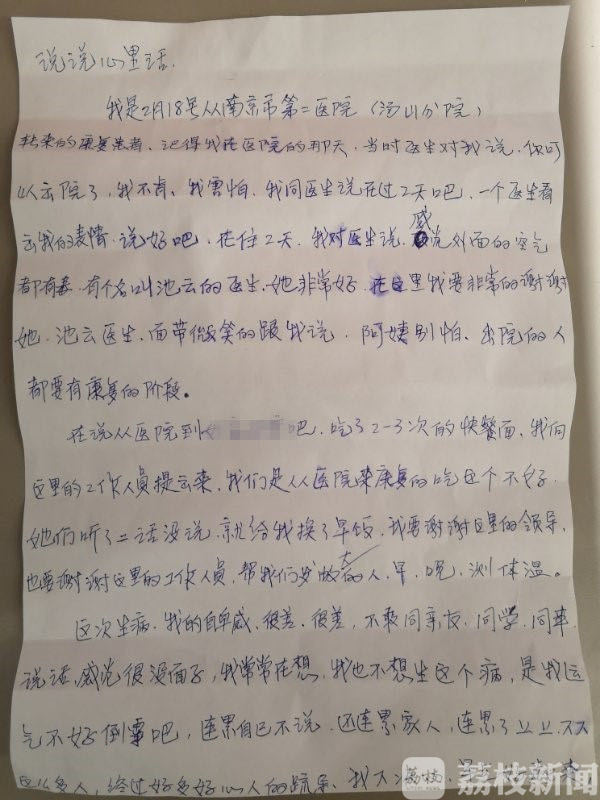 说说心里话.
我是2月18号从南京市第二医院（汤山分院）
转来的康复患者、记得我在医院的那天、当时医生对我说、你可
以云院了，我不肯、我害怕、我同医生说在过2天吧、一个医生看
云我的表情、说好吧、在住2天、我对医生说、感觉外面的空气
都有毒、有个名叫池云的医生、她非常好、在这里我要非常的谢谢
她、池云医生、面带微笑的跟我说、阿姨别怕、出院的人
都要有康复的阶段。
在说从医院到 吧、吃了2-3次的快餐面、我向
这里的工作人员提云来、我们是从医院来康复的吃这个不好.
她们听了二话没说、就给我换了早饭、我要谢谢这里的领导、
也要谢谢这里的工作人员、帮我们 的人、早、晚、测体温。
这次生病、我的自卑感、很差、很差、不敢同亲友、同学、同事
说话、感觉很没面子、我常常在想、我也不想生这个病，是我运
气不好倒霉吧、连累自己不说、还连累家人、连累了
这么多人，经过好多好心人的疏导、我不
荔枝
荔枝新闻